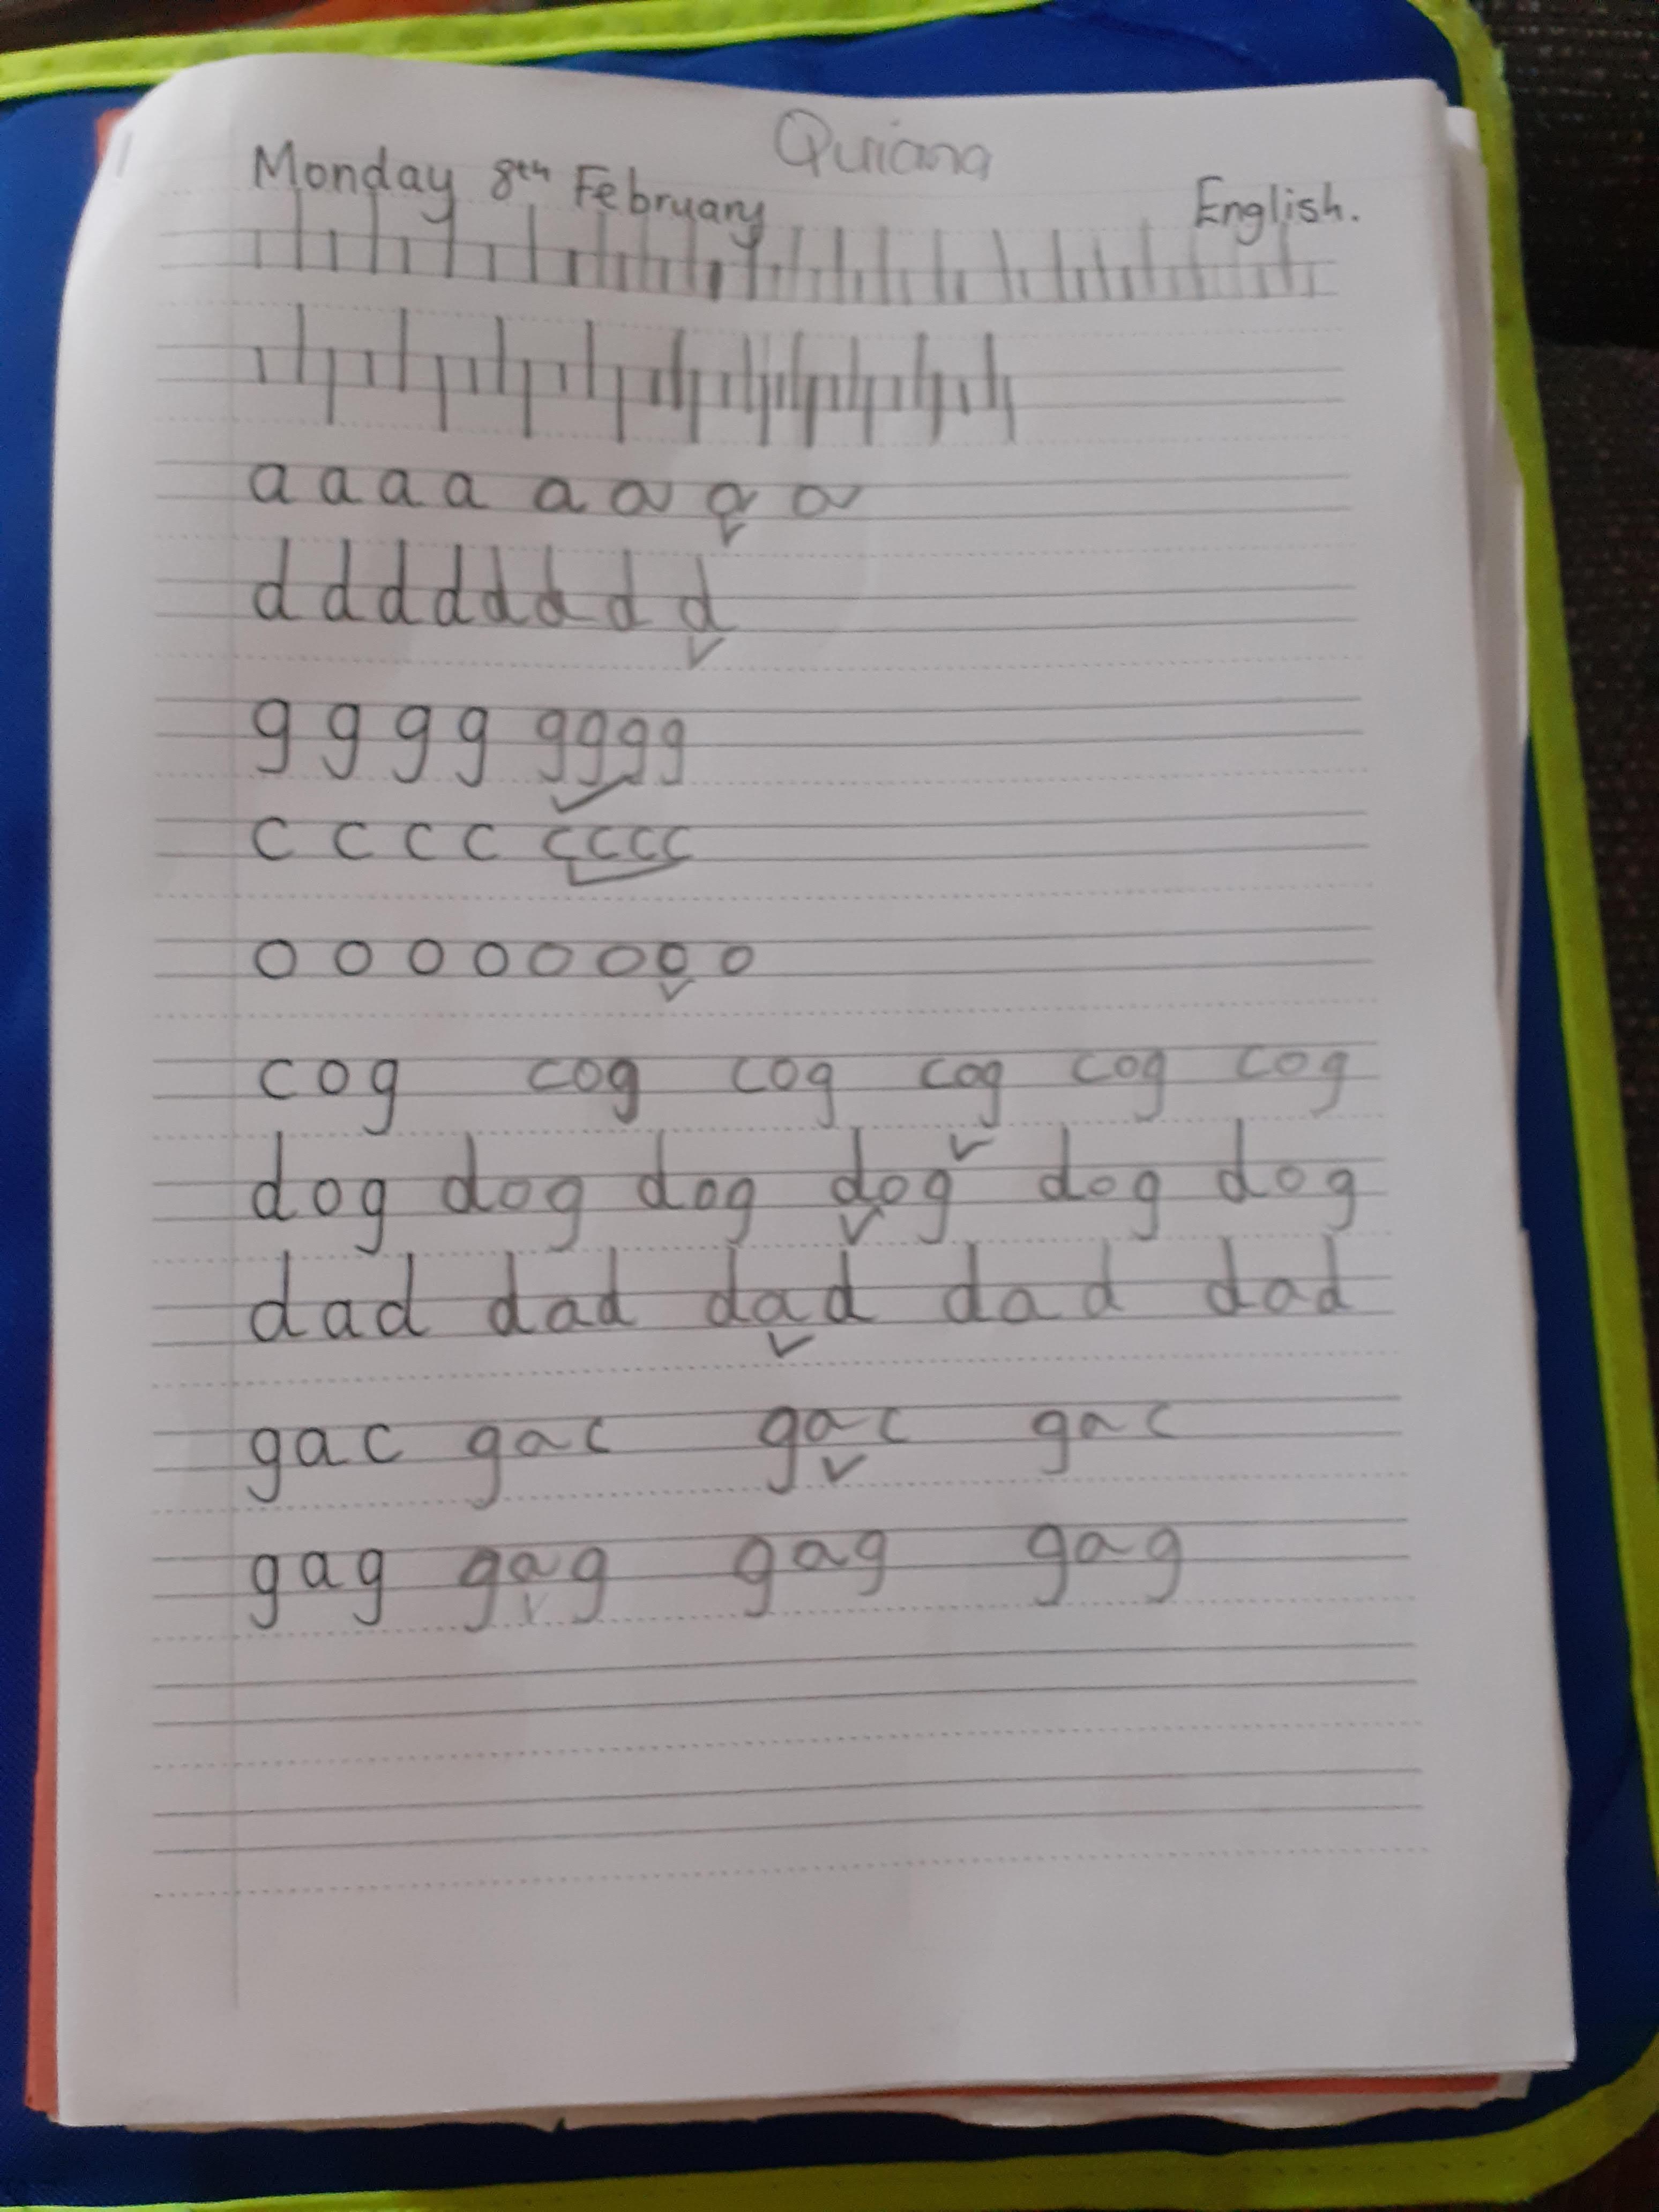 Quiana
Monday 8th February
English.
a a a a a a a a
d d d d d d d d
g g g g g g g g
c c c c c c c c
o o o o o o o o
cog cog cog cog cog cog
dog dog dog dog dog dog
dad dad dad dad dad
gac gac gac gac
gag gag gag gag